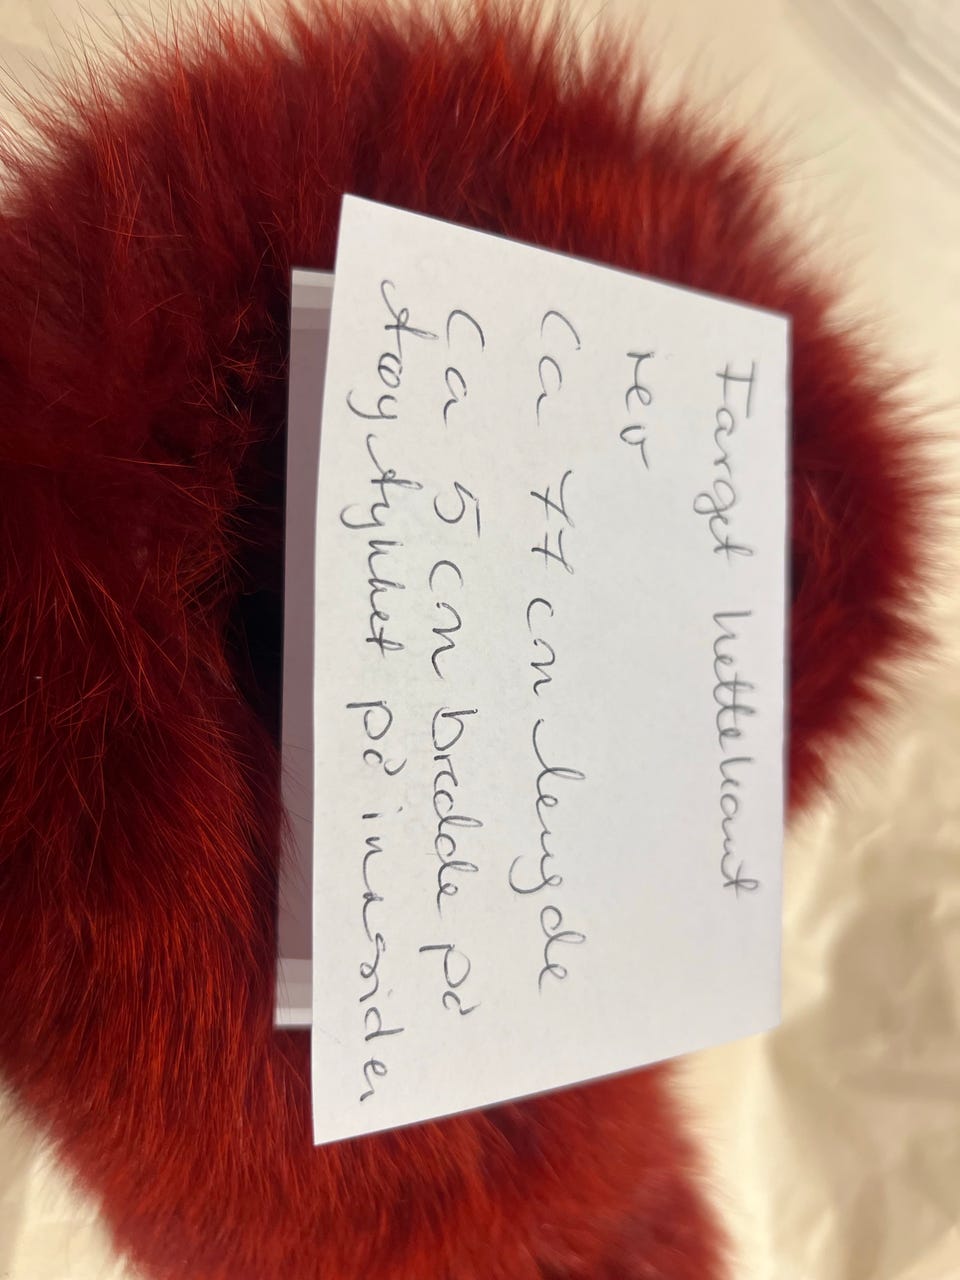 Farget hettekant
rev
Ca 77 cm lengde
Ca 5 cm bredde på
tøystykket på innsiden